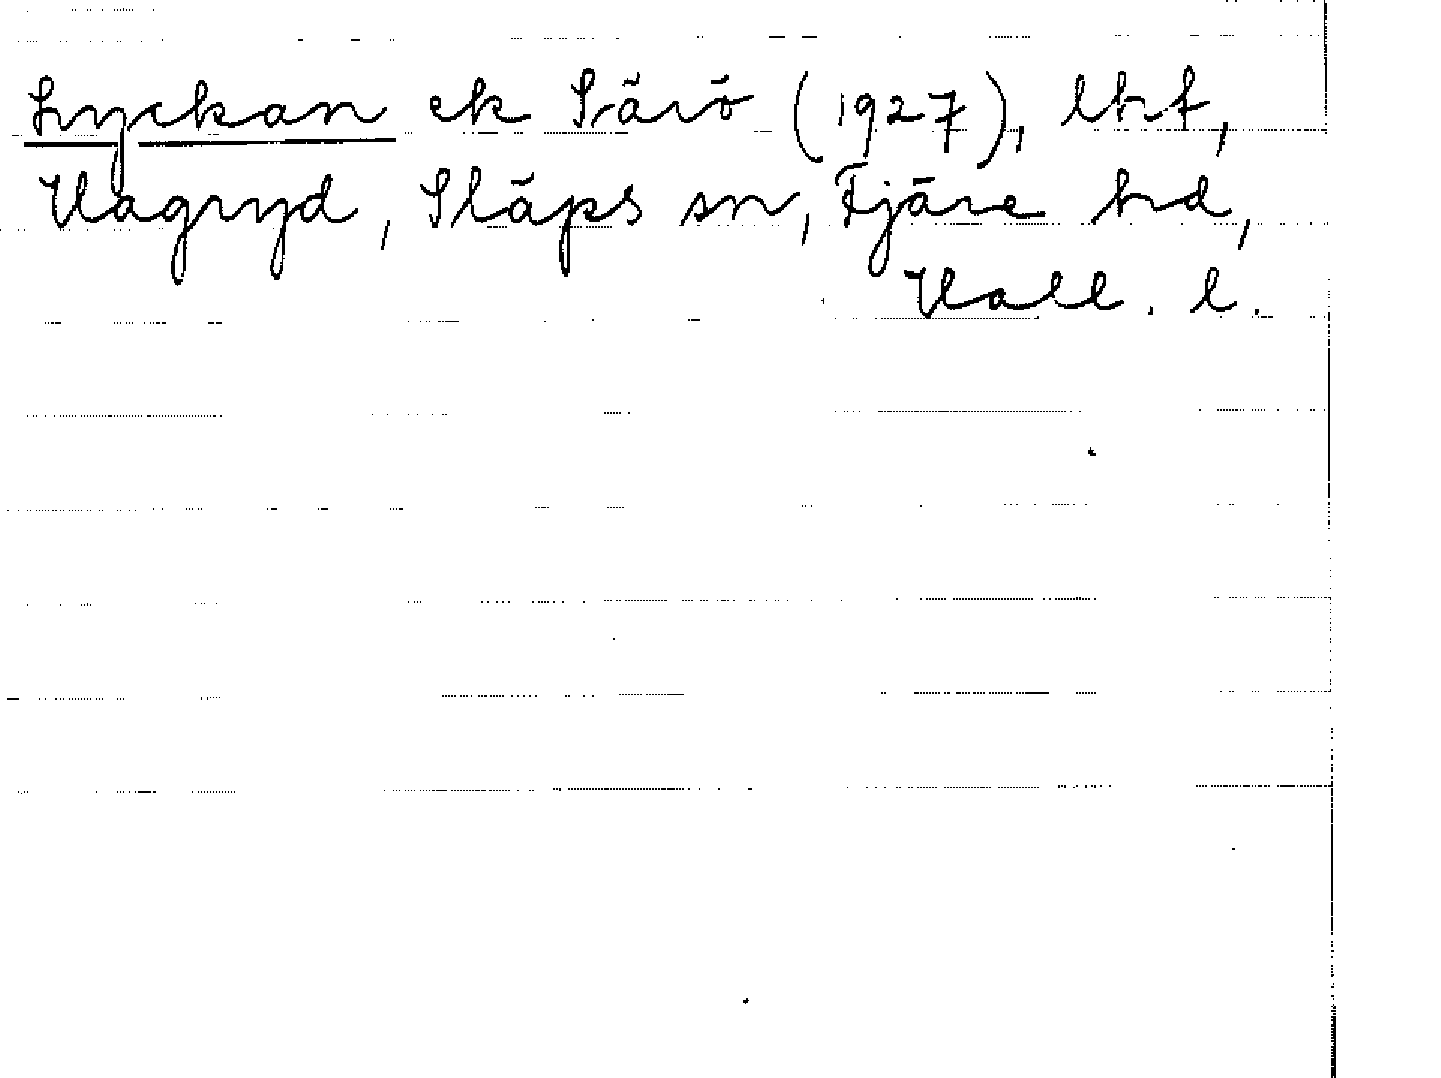 Lyckan ek Särö (1927), lht,
Hagryd, Släps sn, Fjäre hd,
Hall. l.